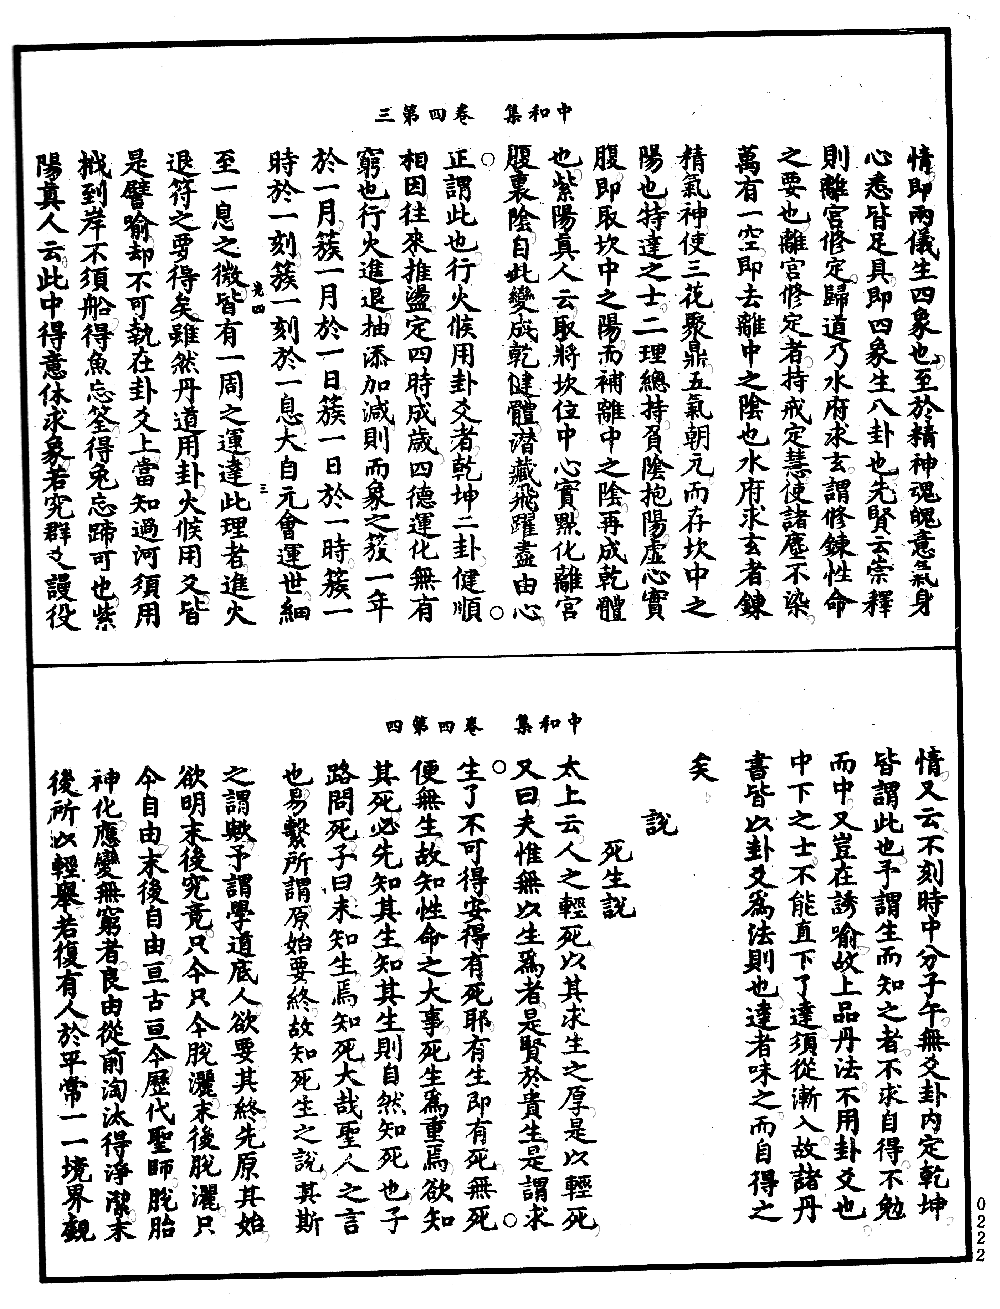 中和集　卷四第三
情即兩儀生四象也至於精神魂魄意氣身
心悉皆足具即四象生八卦也先賢云崇釋
則離宮修定歸道乃水府求玄謂修鍊性命
之要也離宮修定者持戒定慧使諸塵不染
萬有一空即去離中之陰也水府求玄者鍊
精氣神使三花聚鼎五氣朝元而存坎中之
陽也特達之士二理總持負陰抱陽虛心實
腹即取坎中之陽而補離中之陰再成乾體
也紫陽真人云取將坎位中心實點化離宮
腹裏陰自此變成乾健體潛藏飛躍盡由心
正謂此也行火候用卦爻者乾坤二卦健順
相因往來推盪定四時成歲四德運化無有
窮也行火進退抽添加減則而象之簇一年
於一月簇一月於一日簇一日於一時簇一
時於一刻簇一刻於一息大自元會運世細
光四　三
至一息之微皆有一周之運達此理者進火
退符之要得矣雖然丹道用卦火候用爻皆
是譬喻却不可執在卦爻上當知過河須用
栰到岸不須船得魚忘筌得兔忘蹄可也紫
陽真人云此中得意休求象若究群爻謾役
中和集　卷四第四
情又云不刻時中分子午無爻卦內定乾坤
皆謂此也予謂生而知之者不求自得不勉
而中又豈在誘喻故上品丹法不用卦爻也
中下之士不能直下了達須從漸入故諸丹
書皆以卦爻爲法則也達者味之而自得之
矣
說
死生說
太上云人之輕死以其求生之厚是以輕死
又曰夫惟無以生爲者是賢於貴生是謂求
生了不可得安得有死耶有生即有死無死
便無生故知性命之大事死生爲重焉欲知
其死必先知其生知其生則自然知死也子
路問死子曰未知生焉知死大哉聖人之言
也易繫所謂原始要終故知死生之說其斯
之謂歟予謂學道底人欲要其終先原其始
欲明末後究竟只今只今脫灑末後脫灑只
今自由末後自由亘古亘今歷代聖師脫胎
神化應變無窮者良由從前淘汰得淨潔末
後所以輕舉若復有人於平常一一境界觀
0222